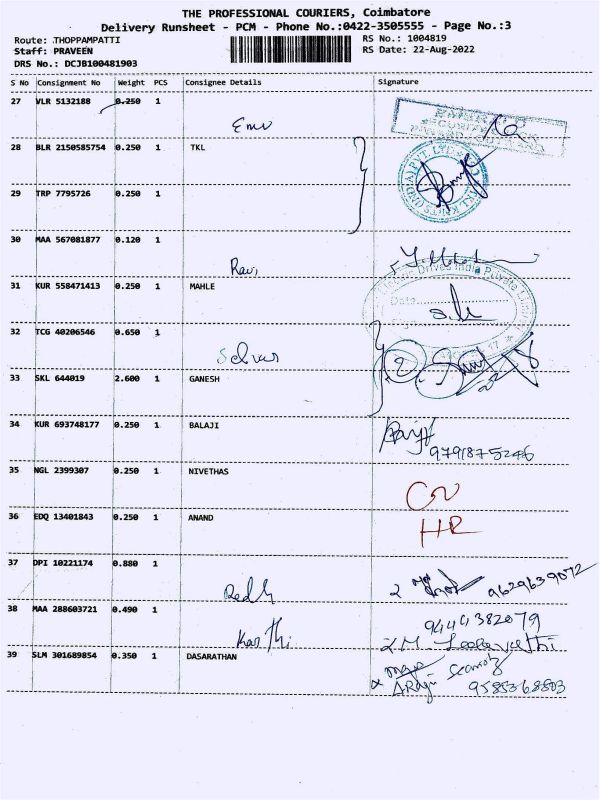 THE PROFESSIONAL COURIERS, Coimbatore
Delivery Runsheet - PCM - Phone No.:0422-3505555 - Page No.:3
Route: THOPPAMPATTI RS No.: 1004819
Staff: PRAVEEN RS Date: 22-Aug-2022
DRS No.: DCJB100481903
S No Consignment No Weight PCS Consignee Details Signature
27 VLR 5132188 0.250 1
28 BLR 2150585754 0.250 1 TKL
29 TRP 7795726 0.250 1
30 MAA 567081877 0.120 1 Ravi
31 KUR 558471413 0.250 1 MAHLE
32 TCG 40206546 0.650 1
33 SKL 644019 2.600 1 GANESH
34 KUR 693748177 0.250 1 BALAJI
9791875246
35 NGL 2399307 0.250 1 NIVETHAS
36 EDQ 13401843 0.250 1 ANAND HR
37 DPI 10221174 0.880 1 9629639072
38 MAA 288603721 0.490 1 Karthi 9444382079
39 SLM 301689854 0.350 1 DASARATHAN
9585368803